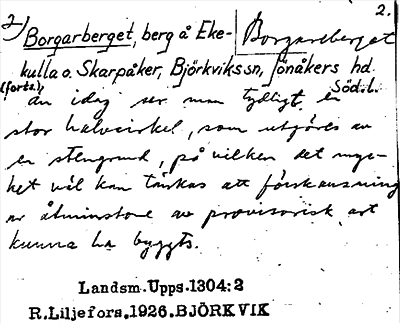 2) 2.
Borgarberget, berg å Eke- Borgareberget
kulla o. Skarpåker, Björkvikssn, Jönåkers hd.
(forts.) Söd.l.
än idag ser man tydligt en
stor halvcirkel, som utgöres av
en stengrund, på vilken det myc-
ket väl kan tänkas att förskansning
av åtminstone av provisorisk art
kunna ha byggts.
Landsm.Upps.1304:2
R.Liljefors.1926.BJÖRKVIK